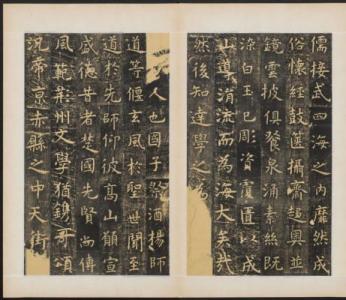 儒接武四海之內靡然成
俗懷經鼓篋攝齊趨奧並
鏡雲披俱餐泉涌素絲既
涂白玉已彫資覆匱以成
山導涓流而為海大矣哉
然後知達學之為
人也國子祭酒揚師
道等偃玄風於聖世聞至
道於先師仰彼高山願宣
盛德昔者楚國先賢尚傳
風範荊州文學猶鐫哥頌
況帝京赤縣之中天街